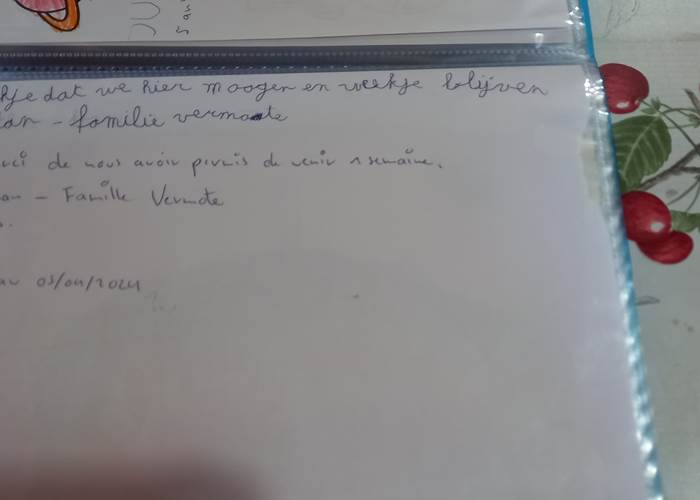 dat we hier moogen en weekje blijven
an - familie vermote
de nous avoir permis de venir 1 semaine.
an - Famille Vermote
au 05/04/2024